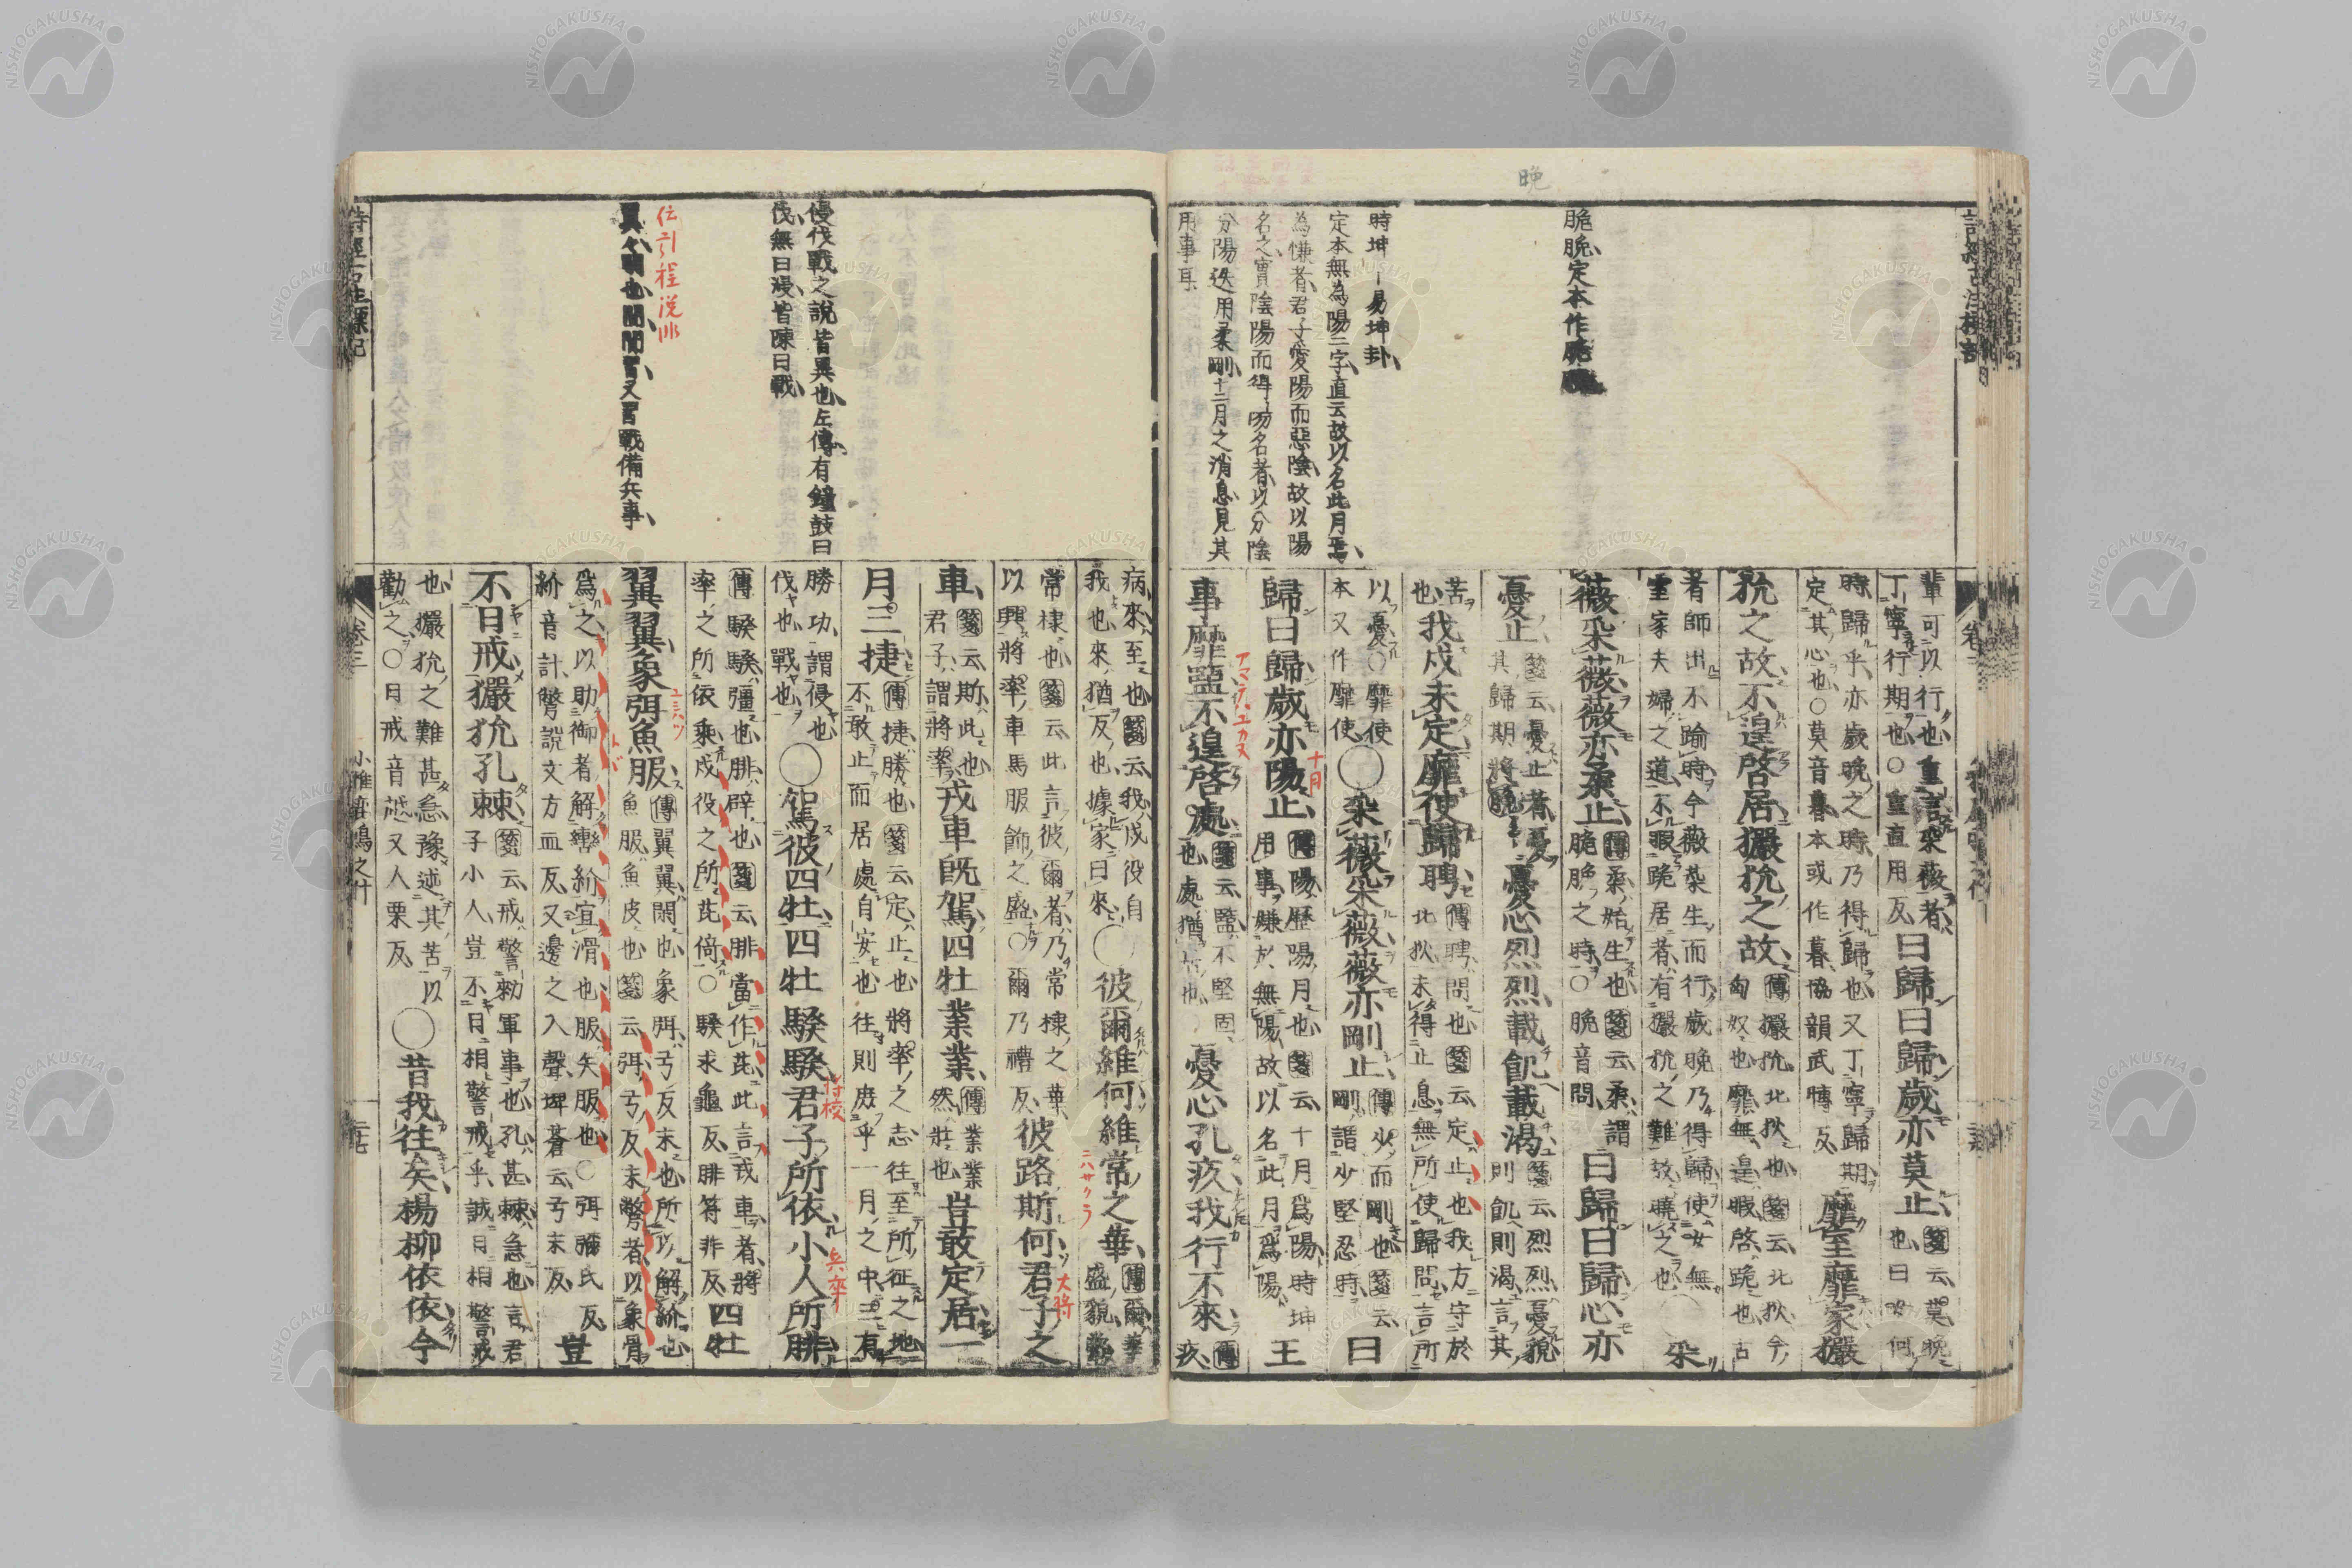 晩
脆脕定本作脆
時坤｜易坤卦
定本無為陽二字直云故以名此月焉
為慊者君子愛陽而惡陰故以陽
名之實陰陽而得陽名者以分陰
分陽迭用柔剛十二月之消息見其
用事耳
輩可以行也重言采薇者
丁寧行期也○重直用反
曰歸曰歸歲亦莫止
箋云莫晚
也曰女何
時歸乎亦歲晚之時乃得歸也又丁寧歸期
定其心也○莫音暮本或作暮協韻武博反
靡室靡家玁
狁之故不遑啓居玁狁之故
傳玁狁北狄也箋云北狄今
匈奴也靡無遑暇啓跪也古
者師出不踰時今薇菜生而行歲晚乃得歸使女無
室家夫婦之道不暇跪居者有玁狁之難故曉之也
采
薇采薇薇亦柔止
傳柔始生也箋云柔謂
脆脕之時○脕音問
曰歸曰歸心亦
憂止
箋云憂止者憂
其歸期將晚
憂心烈烈載飢載渴
箋云烈烈憂貌
則飢則渴言其
苦也
我戍未定靡使歸聘
傳聘問也箋云定止也我方守於
北狄未得止息無所使歸問言所
以憂○靡使
本又作靡使
○采薇采薇薇亦剛止
傳少而剛也箋云
剛謂少堅忍時
曰
歸曰歸歲亦陽止
十月
傳陽歷陽月也箋云十月爲陽時坤
用事嫌於無陽故以名此月爲陽
王
事靡盬不遑啓處
箋云盬不堅固
也處猶居也
憂心孔疚我行不來
傳
疚
病來至也箋云我戍役自
我也來猶反也據家曰來
○彼爾維何維常之華
傳爾華
盛貌
常棣也箋云此言彼爾者乃常棣之華
以興將率車馬服飾之盛○爾乃禮反
彼路斯何君子之
大將
車
箋云斯此也
君子謂將率
戎車既駕四牡業業
傳業業
然壯也
豈敢定居一
月三捷
傳捷勝也箋云定止也將率之志往至所征之地
不敢止而居處自安也往則庶乎一月之中三有
勝功謂侵也
伐也戰也
○駕彼四牡四牡騤騤君子所依小人所腓
將校
兵卒
傳騤騤彊也腓辟也箋云腓當作芘此言戎車者將
率之所依乘戍役之所芘倚○騤求龜反腓符非反
四牡
翼翼象弭魚服
傳翼翼閑也象弭弓反末也所以解紒也
魚服魚皮也箋云弭弓反末彆者以象骨
爲之以助御者解轡紒宜滑也服矢服也○弭彌氏反
紒音計彆說文方血反又邊之入聲埤蒼云弓末反
豈
不日戒玁狁孔棘
箋云戒警勑軍事也孔甚棘急也言君
子小人豈不日相警戒乎誠日相警戒
也玁狁之難甚急豫述其苦以
勸之○日戒音越又人栗反
○昔我往矣楊柳依依今
侵伐戰之說皆異也左傳有鐘鼓曰
伐無曰侵皆陳曰戰
翼翼閑也閑閑習又習戰備兵事
卷三
小雅鹿鳴之什